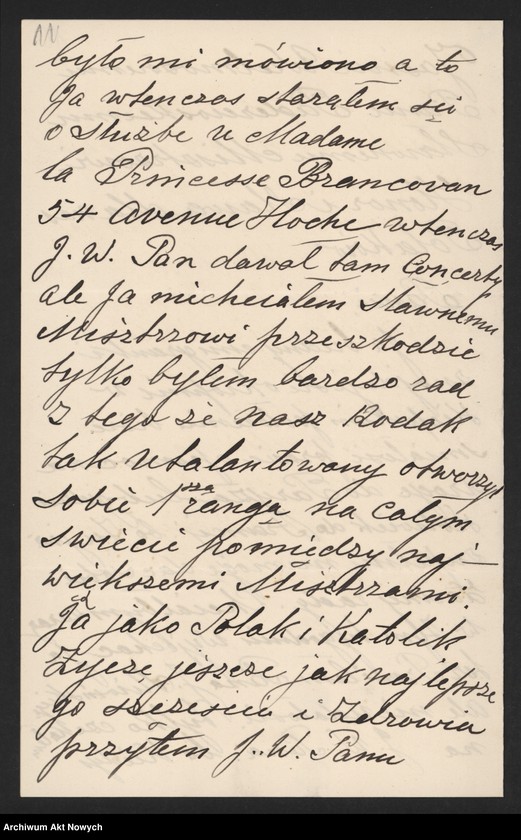 było mi mówiono a to
Ja wtenczas starałem sie
o służbe u Madame
la Princesse Brancovan
54 Avenue Hoche wtenczas
J. W. Pan dawał tam Concerty
ale Ja niechciałem Sławnemu
Misztrzowi przeszkodzic
tylko byłem bardzo rad
z tego że nasz Rodak
tak utalantowany otworzył
sobie 1sza ranga na całym
swiecie pomiedzy naj-
większemi Misztrzami.
Ja jako Polak i Katolik
Zycze jeszcze jak najlepsze
go szczescia i Zdrowia
przytem J. W. Panu
Archiwum Akt Nowych